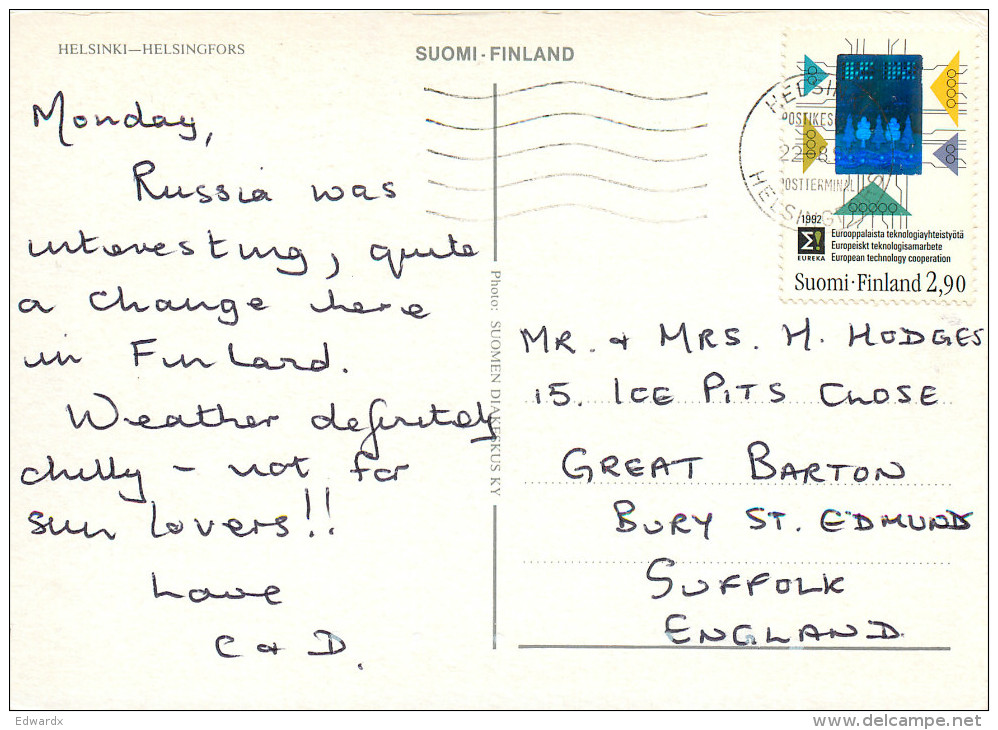 HELSINKI—HELSINGFORS
SUOMI·FINLAND
Monday,
Russia was
interesting, quite
a change here
in Finland.
Weather definitely
chilly – not for
sun lovers!!
Love
C & D.
Photo: SUOMEN DIAKESKUS KY
POSTITERMINAL
1992
EUREKA
Eurooppalaista teknologiayhteistyötä
Europeiskt teknologisamarbete
European technology cooperation
Suomi·Finland 2,90
MR. & MRS. H. HODGES
15. ICE PITS CLOSE
GREAT BARTON
BURY ST. EDMUNDS
SUFFOLK
ENGLAND.
Edwardx
delcampe.net